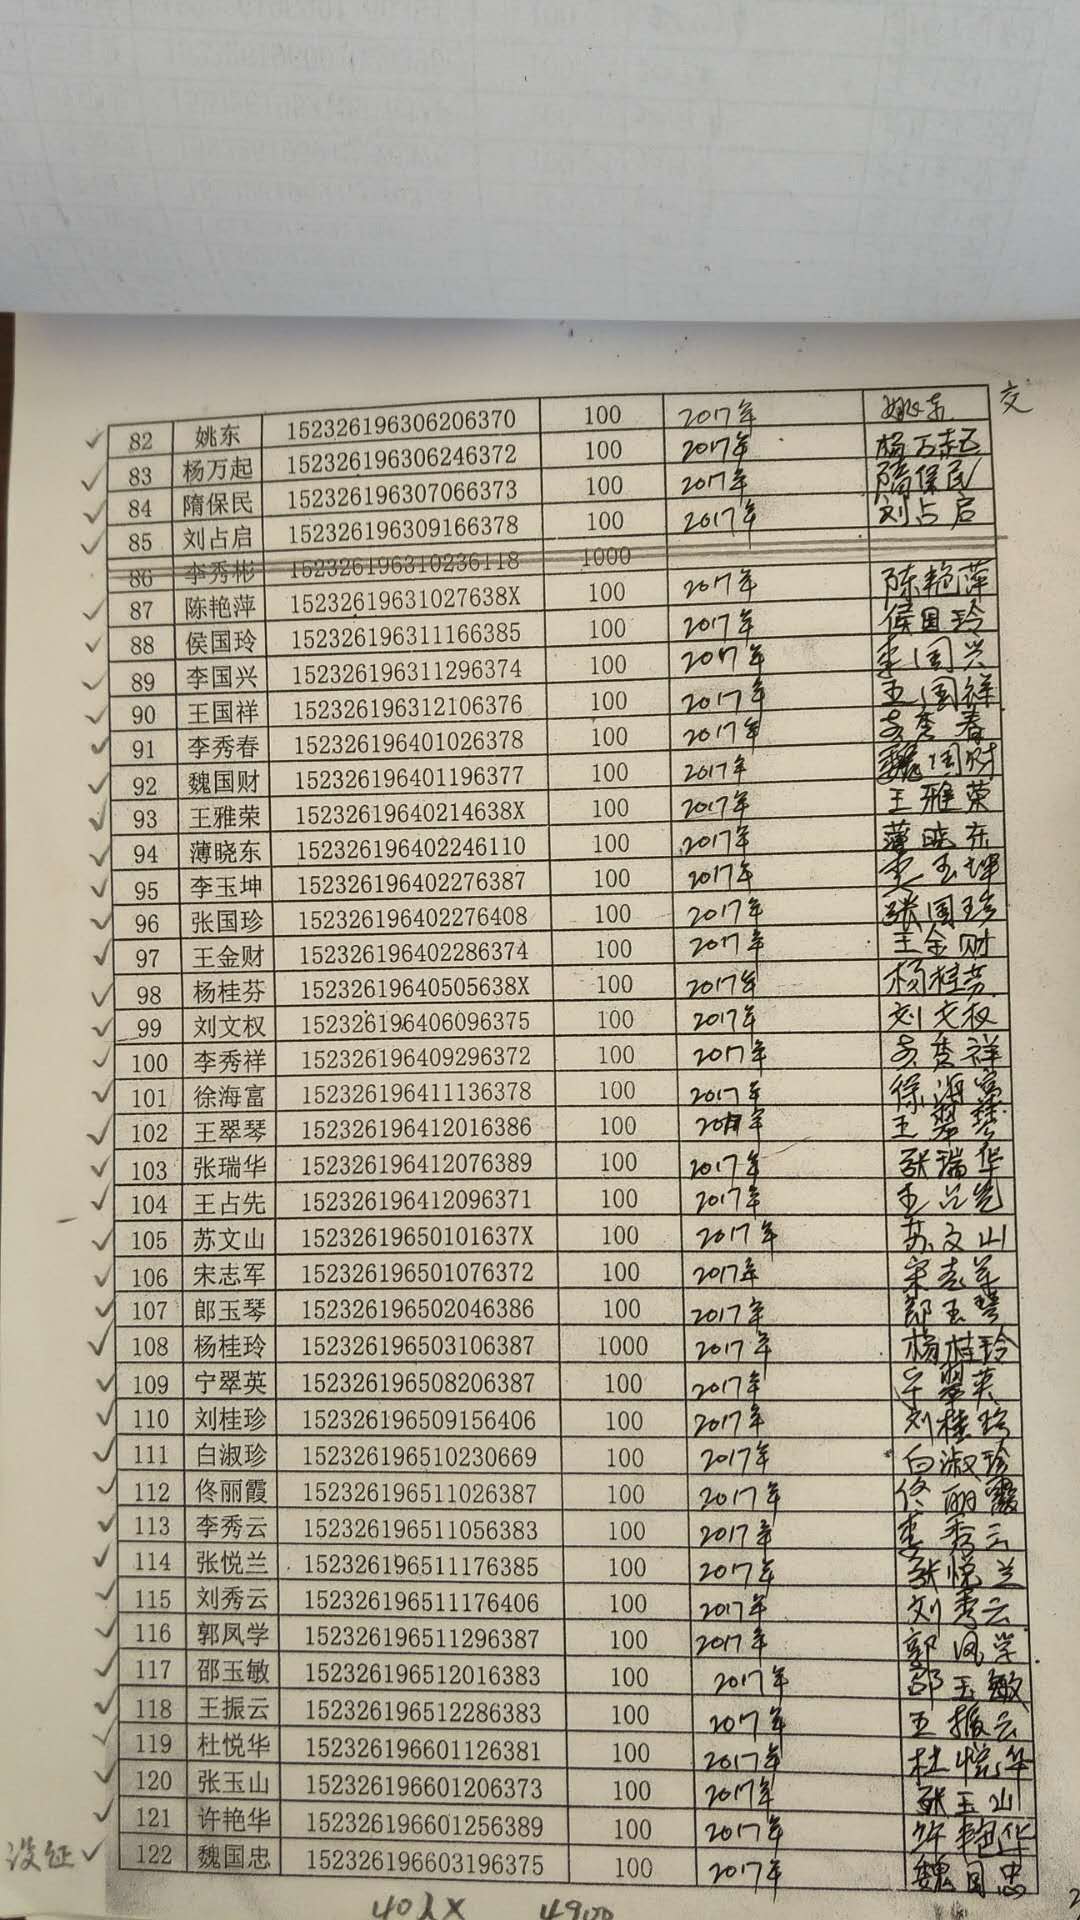 交
82 姚东 152326196306206370 100 2017年 姚东
83 杨万起 152326196306246372 100 2017年 杨万起
84 隋保民 152326196307066373 100 2017年 隋保民
85 刘占启 152326196309166378 100 2017年 刘占启
86 李秀彬 152326196310236118 1000
87 陈艳萍 15232619631027638X 100 2017年 陈艳萍
88 侯国玲 152326196311166385 100 2017年 侯国玲
89 李国兴 152326196311296374 100 2017年 李国兴
90 王国祥 152326196312106376 100 2017年 王国祥
91 李秀春 152326196401026378 100 2017年 李秀春
92 魏国财 152326196401196377 100 2017年 魏国财
93 王雅荣 15232619640214638X 100 2017年 王雅荣
94 薄晓东 152326196402246110 100 2017年 薄晓东
95 李玉坤 152326196402276387 100 2017年 李玉坤
96 张国珍 152326196402276408 100 2017年 张国珍
97 王金财 152326196402286374 100 2017年 王金财
98 杨桂芬 15232619640505638X 100 2017年 杨桂芬
99 刘文权 152326196406096375 100 2017年 刘文权
100 李秀祥 152326196409296372 100 2017年 李秀祥
101 徐海富 152326196411136378 100 2017年 徐海富
102 王翠琴 152326196412016386 100 2017年 王翠琴
103 张瑞华 152326196412076389 100 2017年 张瑞华
104 王占先 152326196412096371 100 2017年 王占先
105 苏文山 15232619650101637X 100 2017年 苏文山
106 宋志军 152326196501076372 100 2017年 宋志军
107 郎玉琴 152326196502046386 100 2017年 郎玉琴
108 杨桂玲 152326196503106387 1000 2017年 杨桂玲
109 宁翠英 152326196508206387 100 2017年 宁翠英
110 刘桂珍 152326196509156406 100 2017年 刘桂珍
111 白淑珍 152326196510230669 100 2017年 白淑珍
112 佟丽霞 152326196511026387 100 2017年 佟丽霞
113 李秀云 152326196511056383 100 2017年 李秀云
114 张悦兰 152326196511176385 100 2017年 张悦兰
115 刘秀云 152326196511176406 100 2017年 刘秀云
116 郭凤学 152326196511296387 100 2017年 郭凤学
117 邵玉敏 152326196512016383 100 2017年 邵玉敏
118 王振云 152326196512286383 100 2017年 王振云
119 杜悦华 152326196601126381 100 2017年 杜悦华
120 张玉山 152326196601206373 100 2017年 张玉山
121 许艳华 152326196601256389 100 2017年 许艳华
没征 122 魏国忠 152326196603196375 100 2017年 魏国忠
40人X 4900